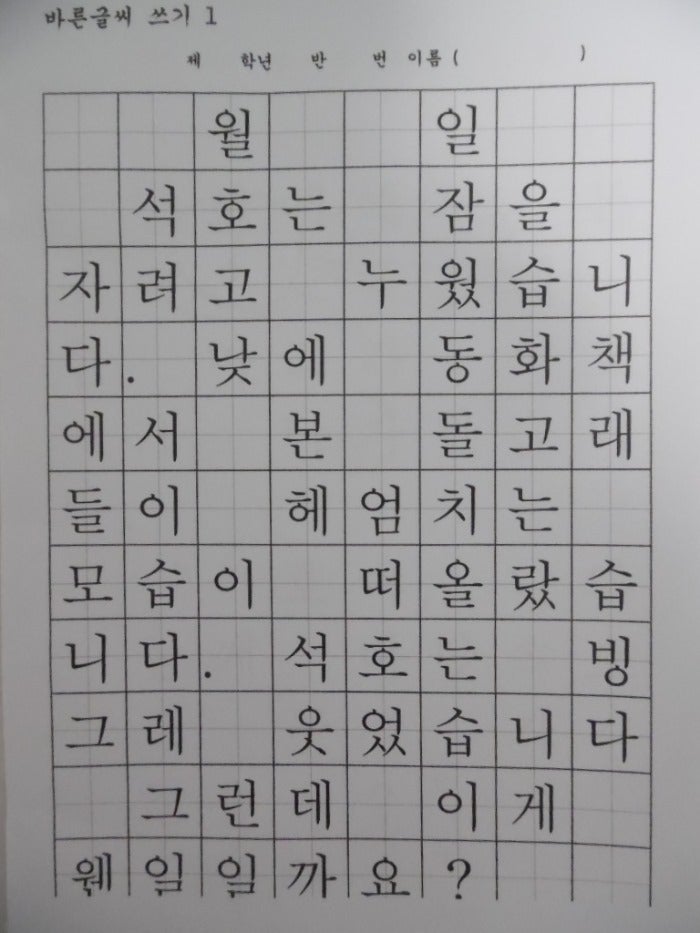 바른글씨 쓰기 1
제 학년 반 번 이름 ( )
월 일
석호는 잠을
자려고 누웠습니
다. 낮에 동화책
에서 본 돌고래
들이 헤엄치는
모습이 떠올랐습
니다. 석호는 빙
그레 웃었습니다
그런데 이게
웬일일까요?